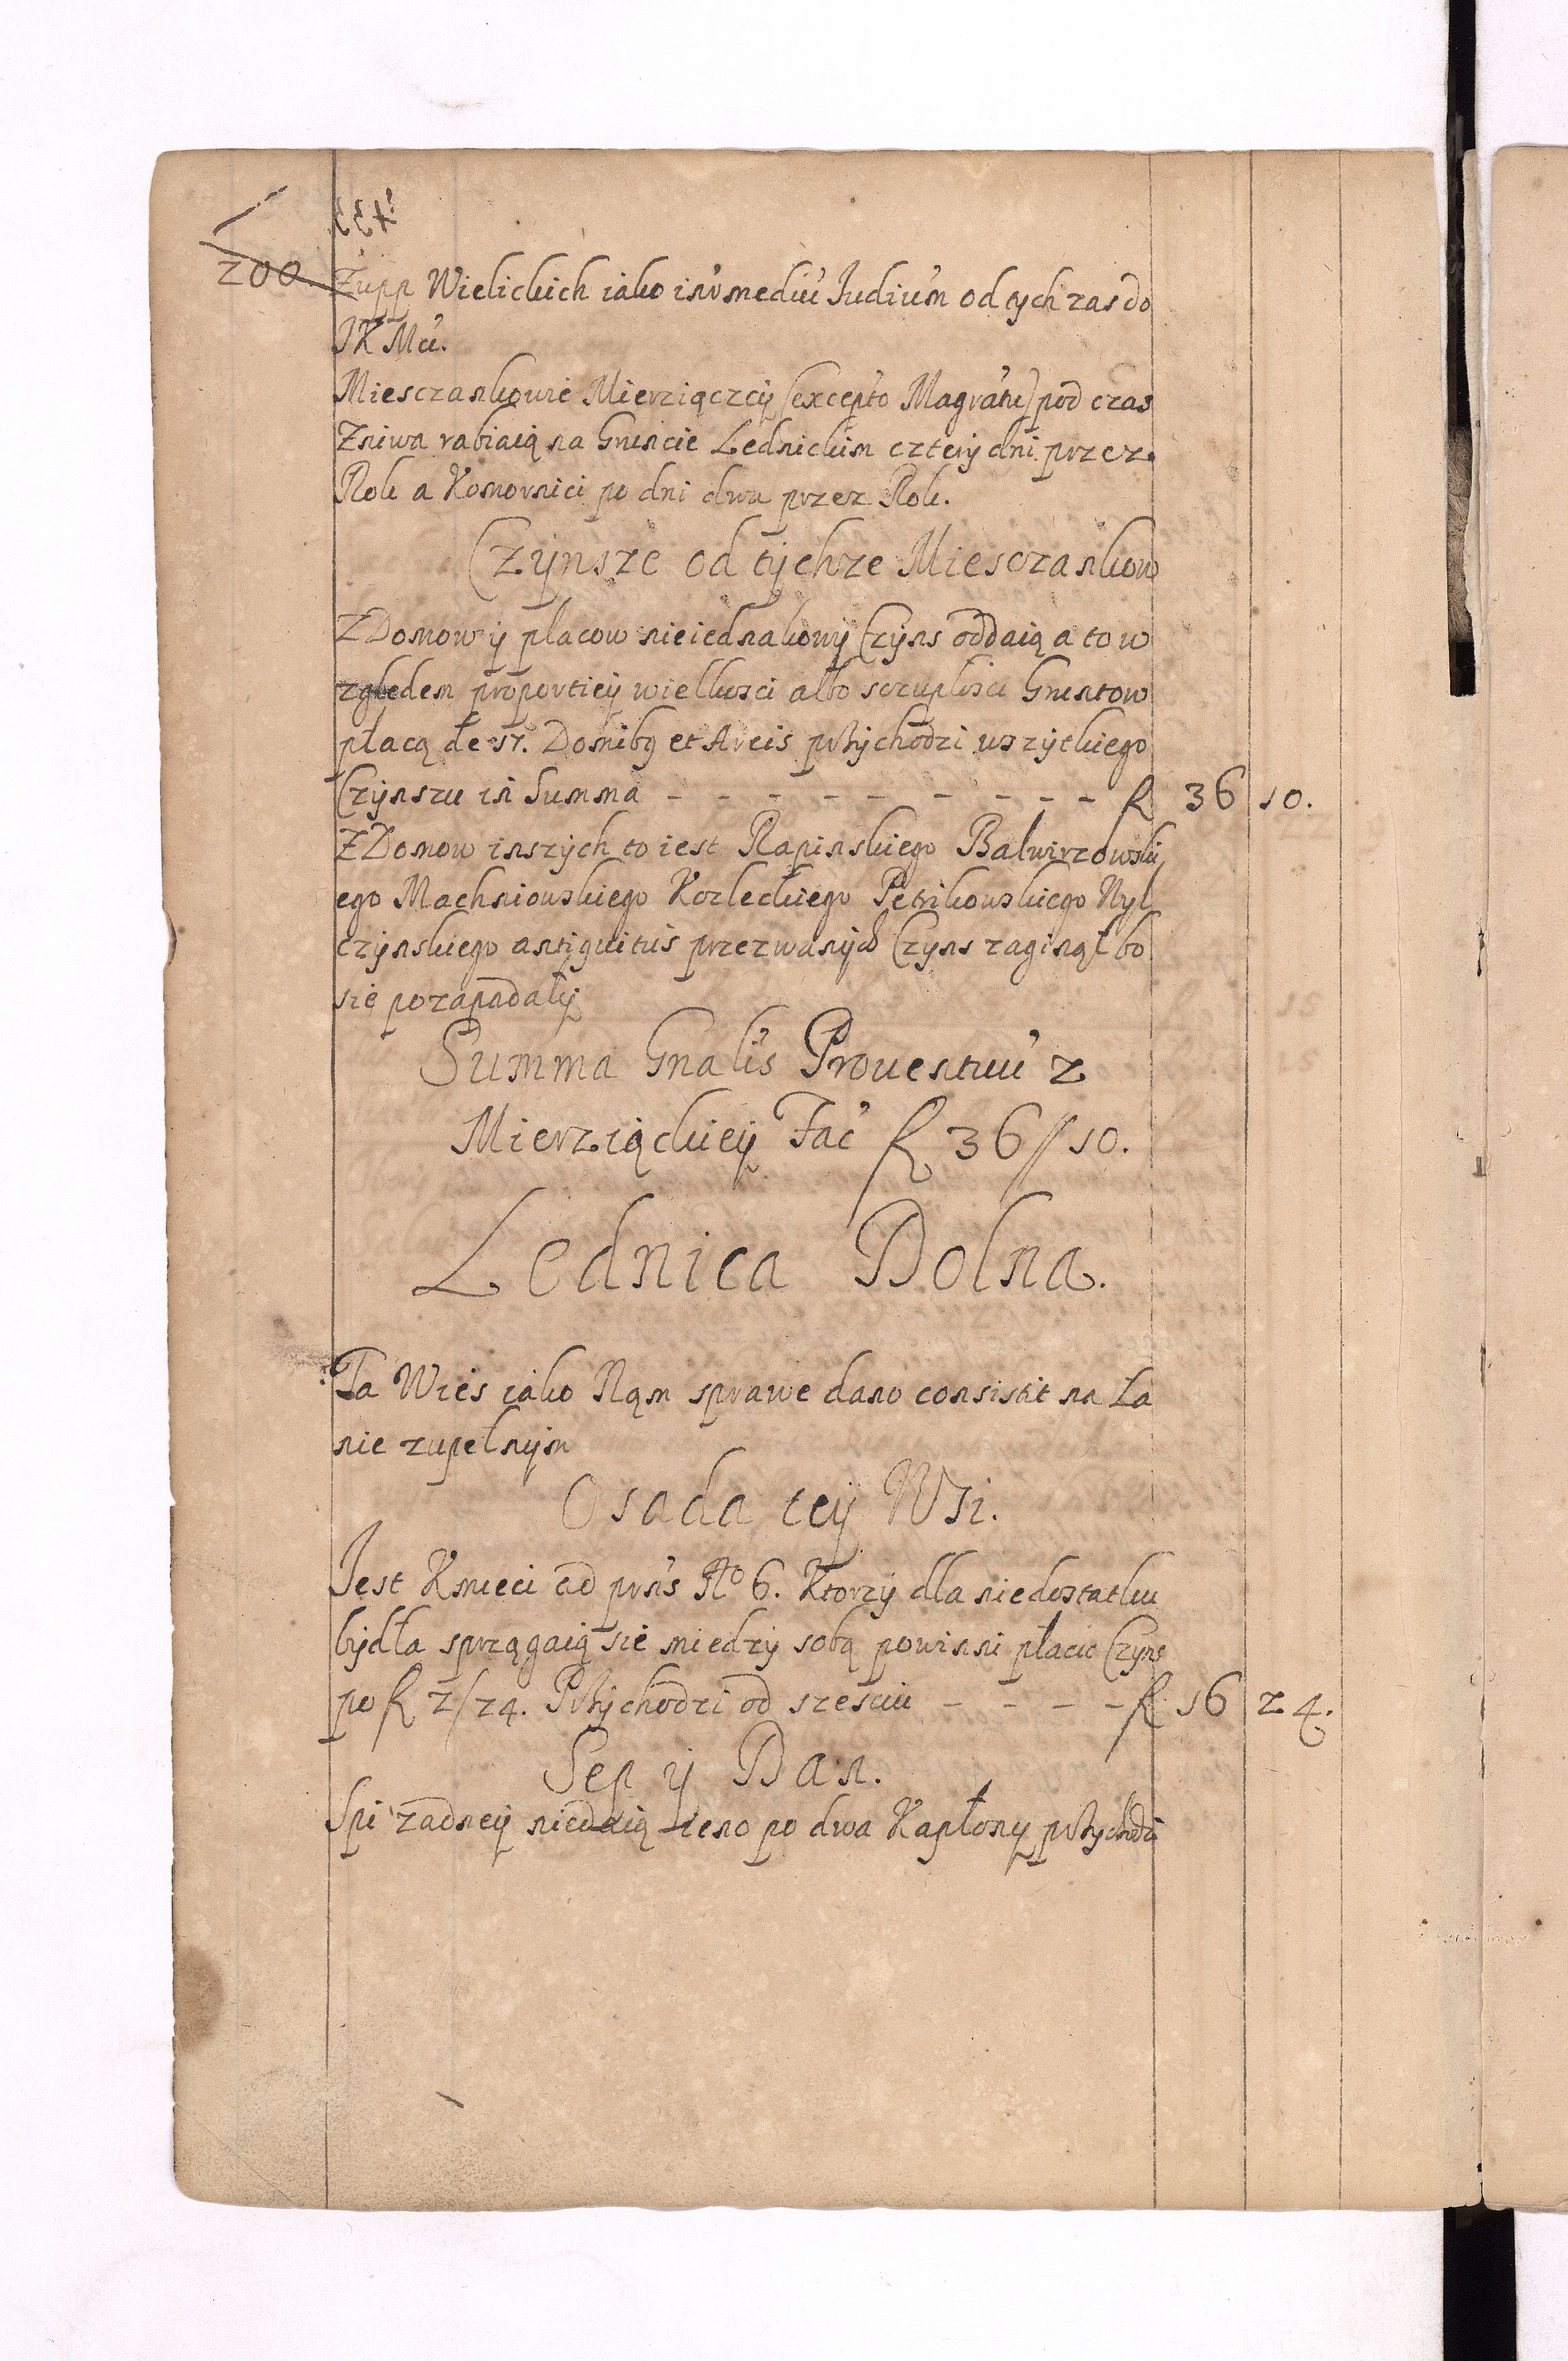 200
Zupp Wielickich iako in mediu Iudium od tych zas do
JK Mci.
Miesczankowie Mierziączcy (excepto Magratu) pod czas
Zniwa rabiaią na Gruncie Lednickim cztery dni przez
Rok a Komornici po dni dwu przez Rok.
Czynsze od tychze Miesczankow
Z Domow ÿ placow nieiednakowy Czyns oddaią a to w
zgledem proportiey wielkosci albo sczuplosci Gruntow
płacą de 17. Domibq et Areis przychodzi wszytkiego
Czynszu in Summa - - - - - - - - - f 36 10.
Z Domow inszych to iest Rapinskiego Balwirzowski
ego Machniowskiego Kozleckiego Petrikowskiego Nyl
czynskiego antiquitus przezwanych Czyns zaginął bo
sie pozapadały
Summa Gnalis Prouentuu z
Mierziąckiey Fac f 36 // 10.
Lednica Dolna.
Ta Wies iako Nąm sprawe dano consistit na Ła
nie zupełnym
Osada tey Wsi.
Jest Kmieci ad prns No 6. Ktorzy dla niedostatku
bydła sprzągaią sie miedzy sobą powinni płacic Czyns
po f 2/24. Przychodzi od szesciu - - - - f 16 24.
Sep ÿ Dan.
Spi zadney niedaią ieno po dwa Kapłony przychodzi